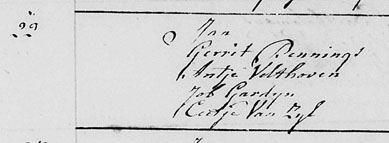 29
Jan
Gerrit Bennings
Antje Velthoven
Job Gardyn
Eertje Van Zyl